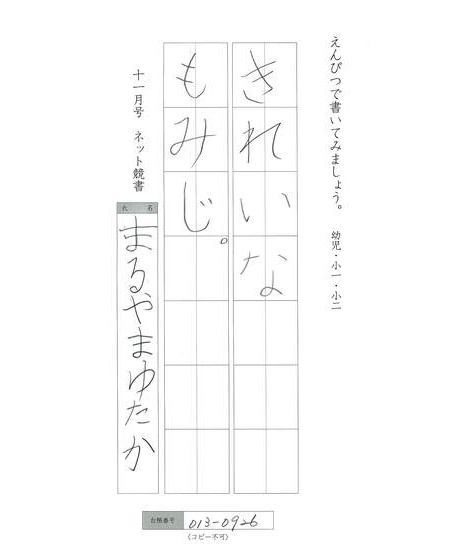 えんぴつで書いてみましょう。 幼児・小一・小二
きれいな
もみじ。
十一月号 ネット競書
氏名
まるやまゆたか
合格番号 013-0926
(コピー不可)